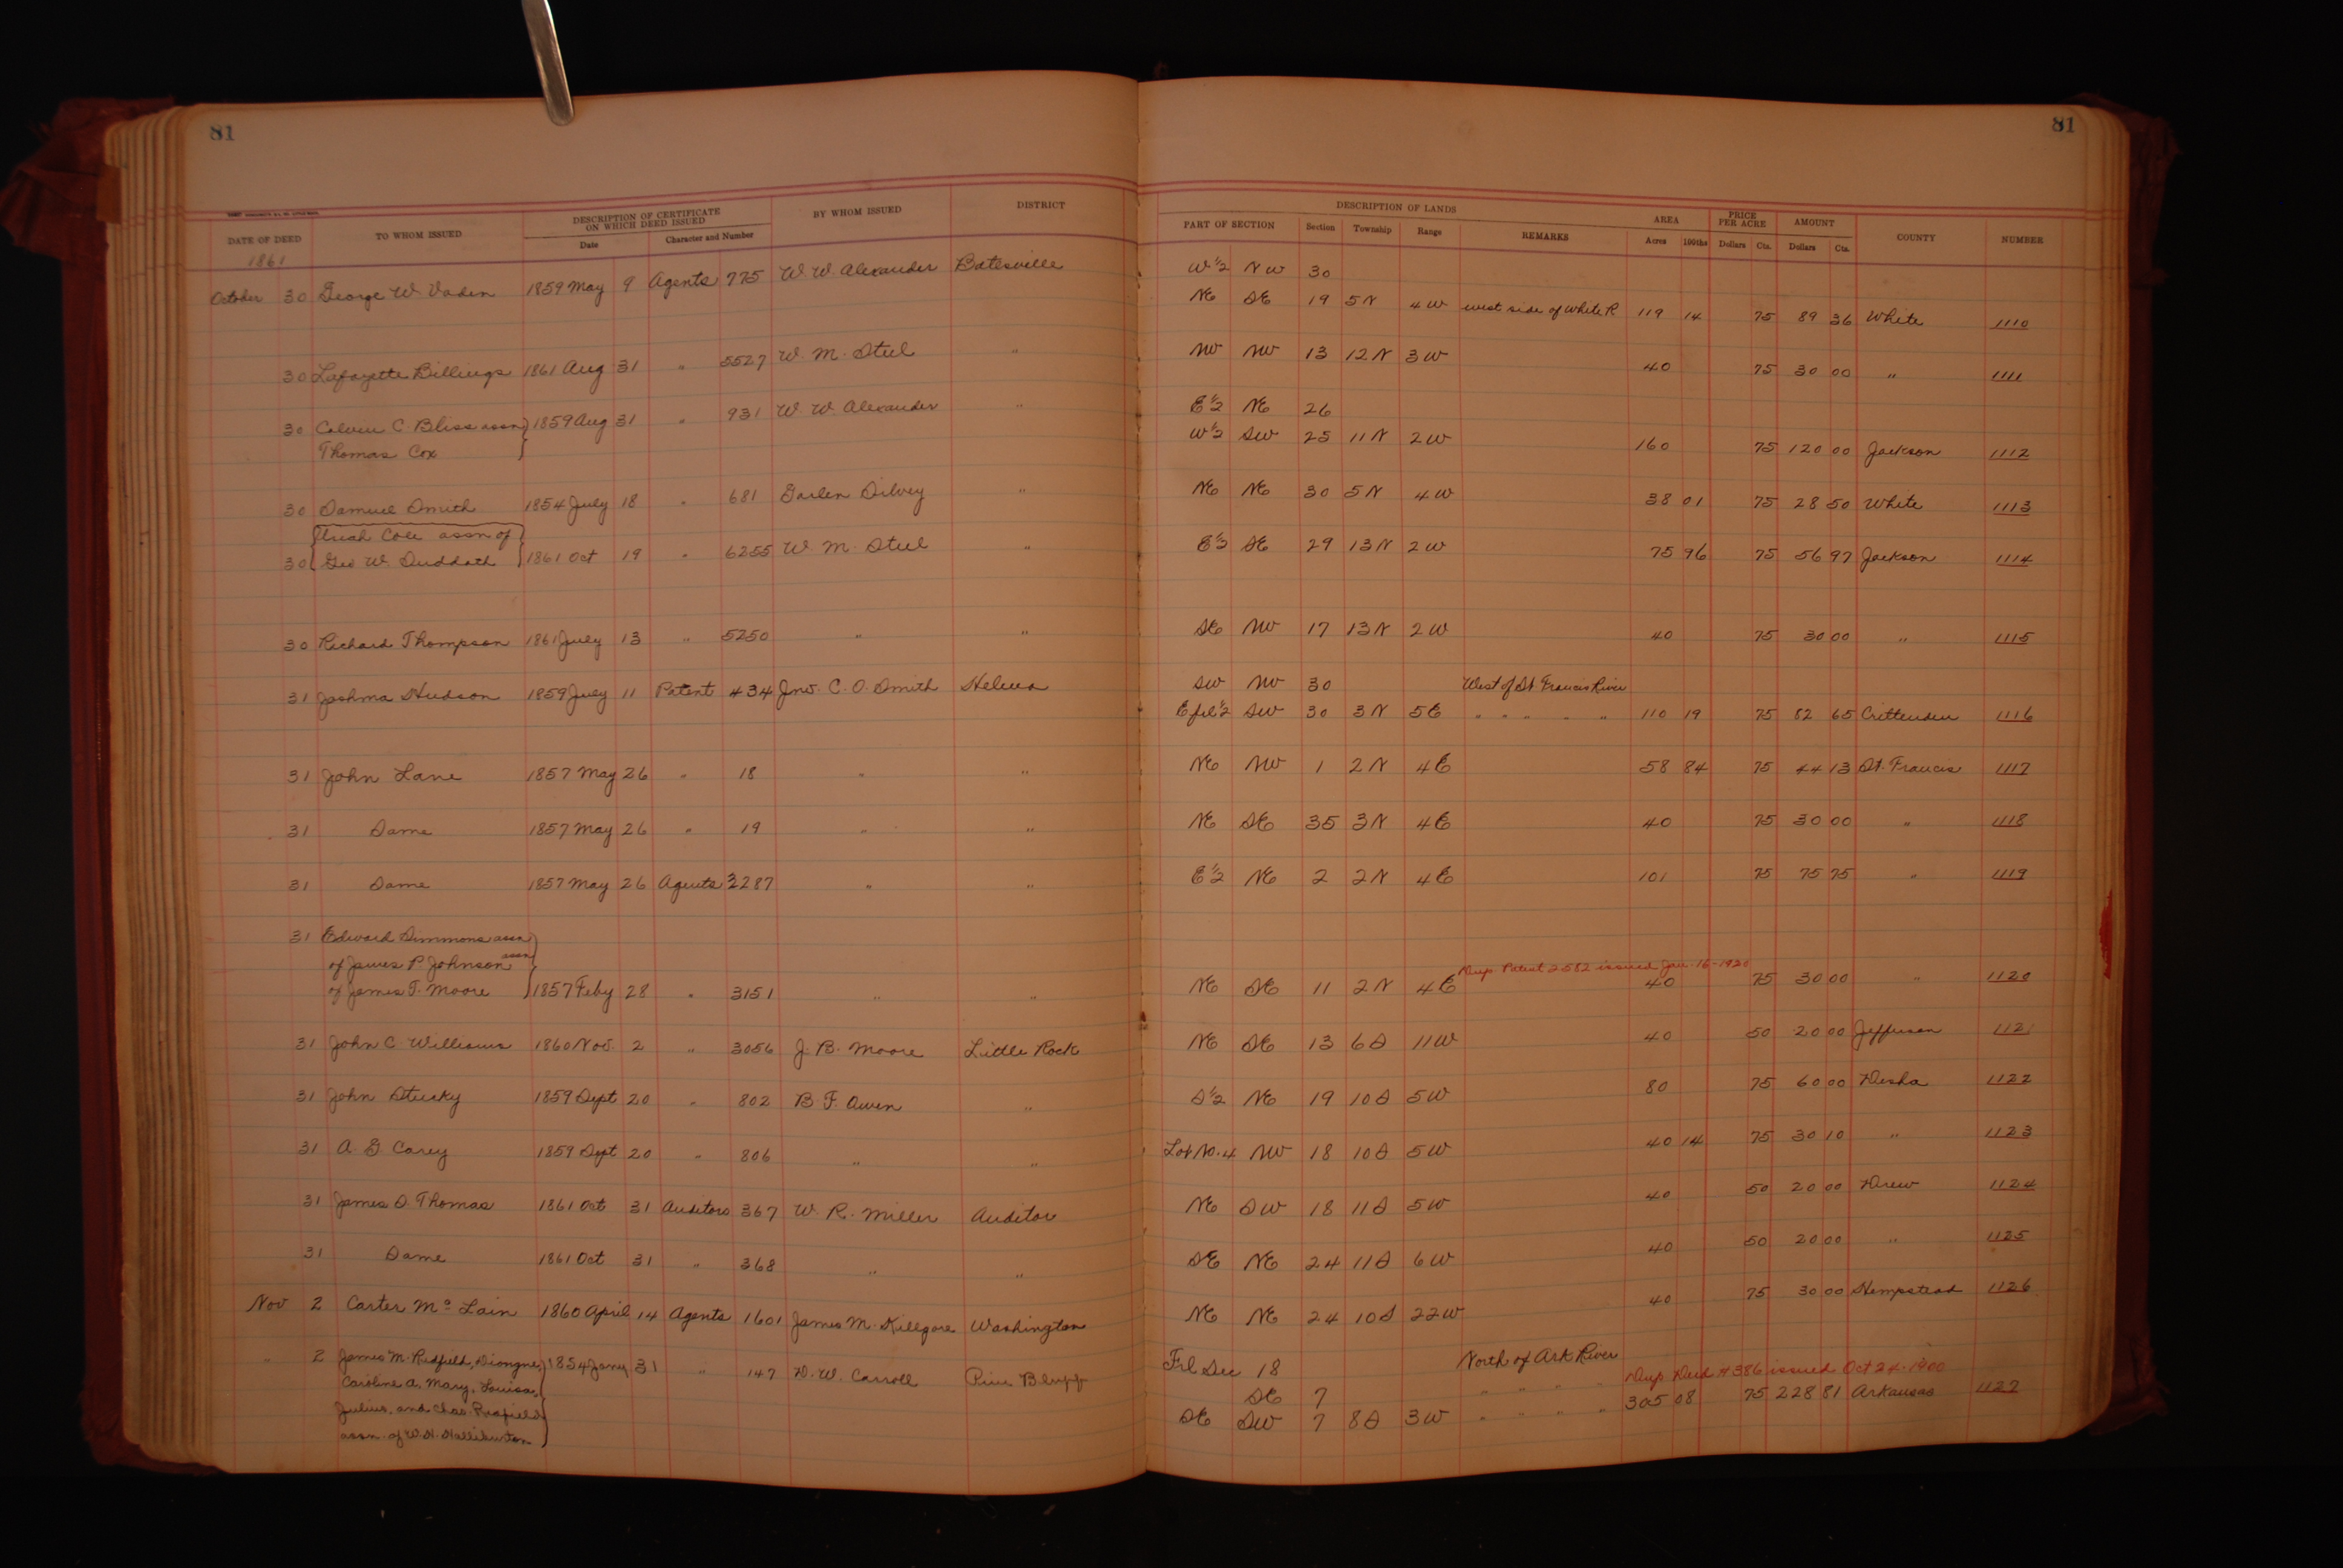 81
81
DATE OF DEED TO WHOM ISSUED DESCRIPTION OF CERTIFICATE ON WHICH DEED ISSUED BY WHOM ISSUED DISTRICT DESCRIPTION OF LANDS AREA PRICE PER ACRE AMOUNT COUNTY NUMBER
Date Character and Number PART OF SECTION Section Township Range REMARKS Acres 100ths Dollars Cts. Dollars Cts.
1861
October 30 George W. Vaden 1859 May 9 Agents 775 W. W. Alexander Batesville W ½ NW 30
NE SE 19 5N 4W west side of White R 119 14 75 89 36 White 1110
30 Lafayette Billings 1861 Aug 31 " 5527 W. M. Steel " NW NW 13 12N 3W 40 75 30 00 " 1111
30 Calvin C. Bliss assn 1859 Aug 31 " 931 W. W. Alexander " E ½ NE 26
Thomas Cox W ½ SW 25 11N 2W 160 75 120 00 Jackson 1112
30 Samuel Smith 1854 July 18 " 681 Garlen Silvey " NE NE 30 5N 4W 38 01 75 28 50 White 1113
Uriah Cole assn of
30 Geo W. Suddath 1861 Oct 19 " 6255 W. M. Steel " E ½ SE 29 13N 2W 75 96 75 56 97 Jackson 1114
30 Richard Thompson 1861 July 13 " 5250 " " SE NW 17 13N 2W 40 75 30 00 " 1115
31 Joshua Hudson 1859 July 11 Patent 434 Jno. C. O. Smith Helena SW NW 30 West of St. Francis River
E frl ½ SW 30 3N 5E " " " " " 110 19 75 82 65 Crittenden 1116
31 John Lane 1857 May 26 " 18 " " NE NW 1 2N 4E 58 84 75 44 13 St. Francis 1117
31 Same 1857 May 26 " 19 " " NE SE 35 3N 4E 40 75 30 00 " 1118
31 Same 1857 May 26 Agents 3287 " " E ½ NE 2 2N 4E 101 75 75 75 " 1119
31 Edward Simmons assn
of James P. Johnson assn Dup. Patent 2582 issued Jan. 16-1920
of James T. Moore 1857 Feby 28 " 3151 " " NE SE 11 2N 4E 40 75 30 00 " 1120
31 John C Williams 1860 Nov. 2 " 3056 J. B. Moore Little Rock NE SE 13 6S 11W 40 50 20 00 Jefferson 1121
31 John Stucky 1859 Sept 20 " 802 B. F. Owen " S ½ NE 19 10S 5W 80 75 60 00 Desha 1122
31 A. G. Carey 1859 Sept 20 " 806 " " Lot No. 4 NW 18 10S 5W 40 14 75 30 10 " 1123
31 James S. Thomas 1861 Oct 31 Auditors 367 W. R. Miller Auditor NE SW 18 11S 5W 40 50 20 00 Drew 1124
31 Same 1861 Oct 31 " 368 " " SE NE 24 11S 6W 40 50 20 00 " 1125
Nov 2 Carter Mc Lain 1860 April 14 Agents 1601 James M. Killgore Washington NE NE 24 10S 22W 40 75 30 00 Hempstead 1126
" 2 James M. Redfield, 1854 Jany 31 " 147 D. W. Carroll Pine Bluff Frl Sec 18 North of Ark River
Caroline A, Mary, Louisa, SE 7 " " " " Dup Deed # 386 issued Oct 24-1900
Julius, and Chas. Redfield SE SW 7 8S 3W " " " " 305 08 75 228 81 Arkansas 1127
assn. of W. H. Halliburton